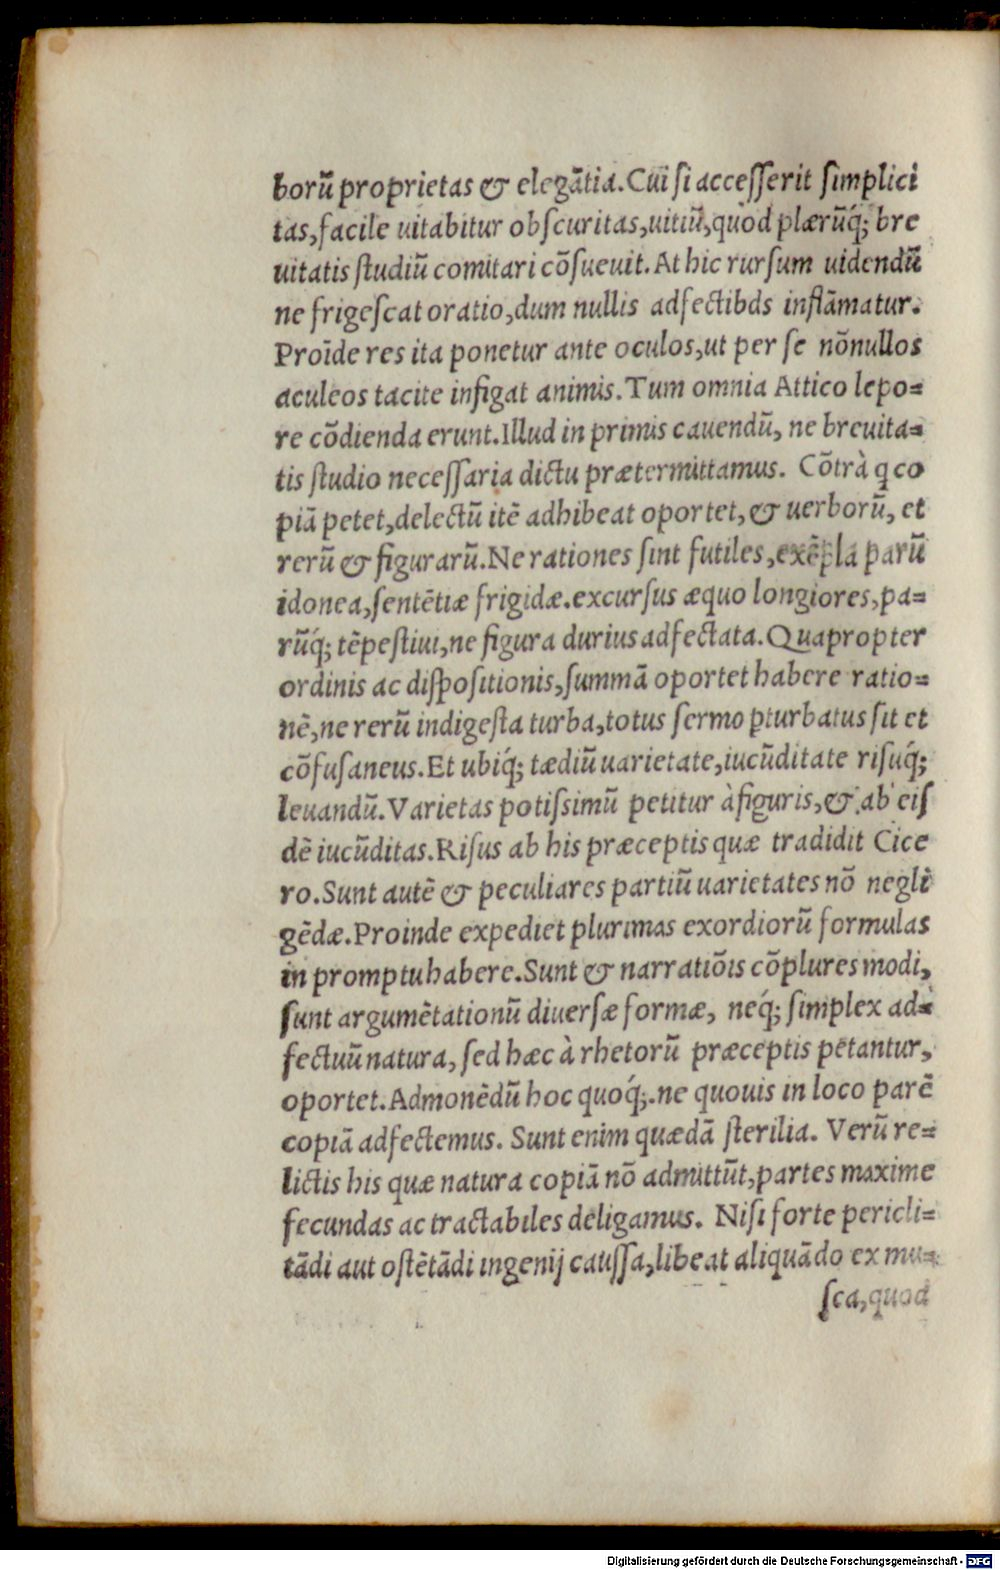 borū proprietas & elegātia. Cui si accesserit simplici
tas, facile uitabitur obscuritas, uitiū, quòd plærūq́; bre
uitatis studiū comitari cōsueuit. At hic rursum uidendū
ne frigescat oratio, dum nullis adfectibds inflāmatur.
Proīde res ita ponetur ante oculos, ut per se nōnullos
aculeos tacite infigat animis. Tum omnia Attico lepo=
re cōdienda erunt. Illud in primis cauendū, ne breuita=
tis studio necessaria dictu prætermittamus. Cōtrà q co
piā petet, delectū itē adhibeat oportet, & uerborū, et
rerū & figurarū. Ne rationes sint futiles, exēpla parū
idonea, sentētiæ frigidæ. excursus æquo longiores, pa=
rūq́; tēpestiui, ne figura durius adfectata. Quapropter
ordinis ac dispositionis, summā oportet habere ratio=
nē, ne rerū indigesta turba, totus sermo ꝑturbatus sit et
cōfusaneus. Et ubiq́; tædiū uarietate, iucūditate risuq́;
leuandū. Varietas potissimū petitur à figuris, & ab eis
dē iucūditas. Risus ab his præceptis quæ tradidit Cice
ro. Sunt autē & peculiares partiū uarietates nō negli
gēdæ. Proinde expediet plurimas exordiorū formulas
in promptu habere. Sunt & narratiōis cōplures modi,
sunt argumētationū diuersæ formæ, neq́; simplex ad=
fectuū natura, sed hæc à rhetorū præceptis petantur,
oportet. Admonēdū hoc quoq́;. ne quouis in loco parē
copiā adfectemus. Sunt enim quædā sterilia. Verū re=
lictis his quæ natura copiā nō admittūt, partes maxime
fecundas ac tractabiles deligamus. Nisi forte pericli=
tādi aut ostētādi ingenij caussa, libeat aliquādo ex mu=
sca, quod
Digitalisierung gefördert durch die Deutsche Forschungsgemeinschaft - DFG